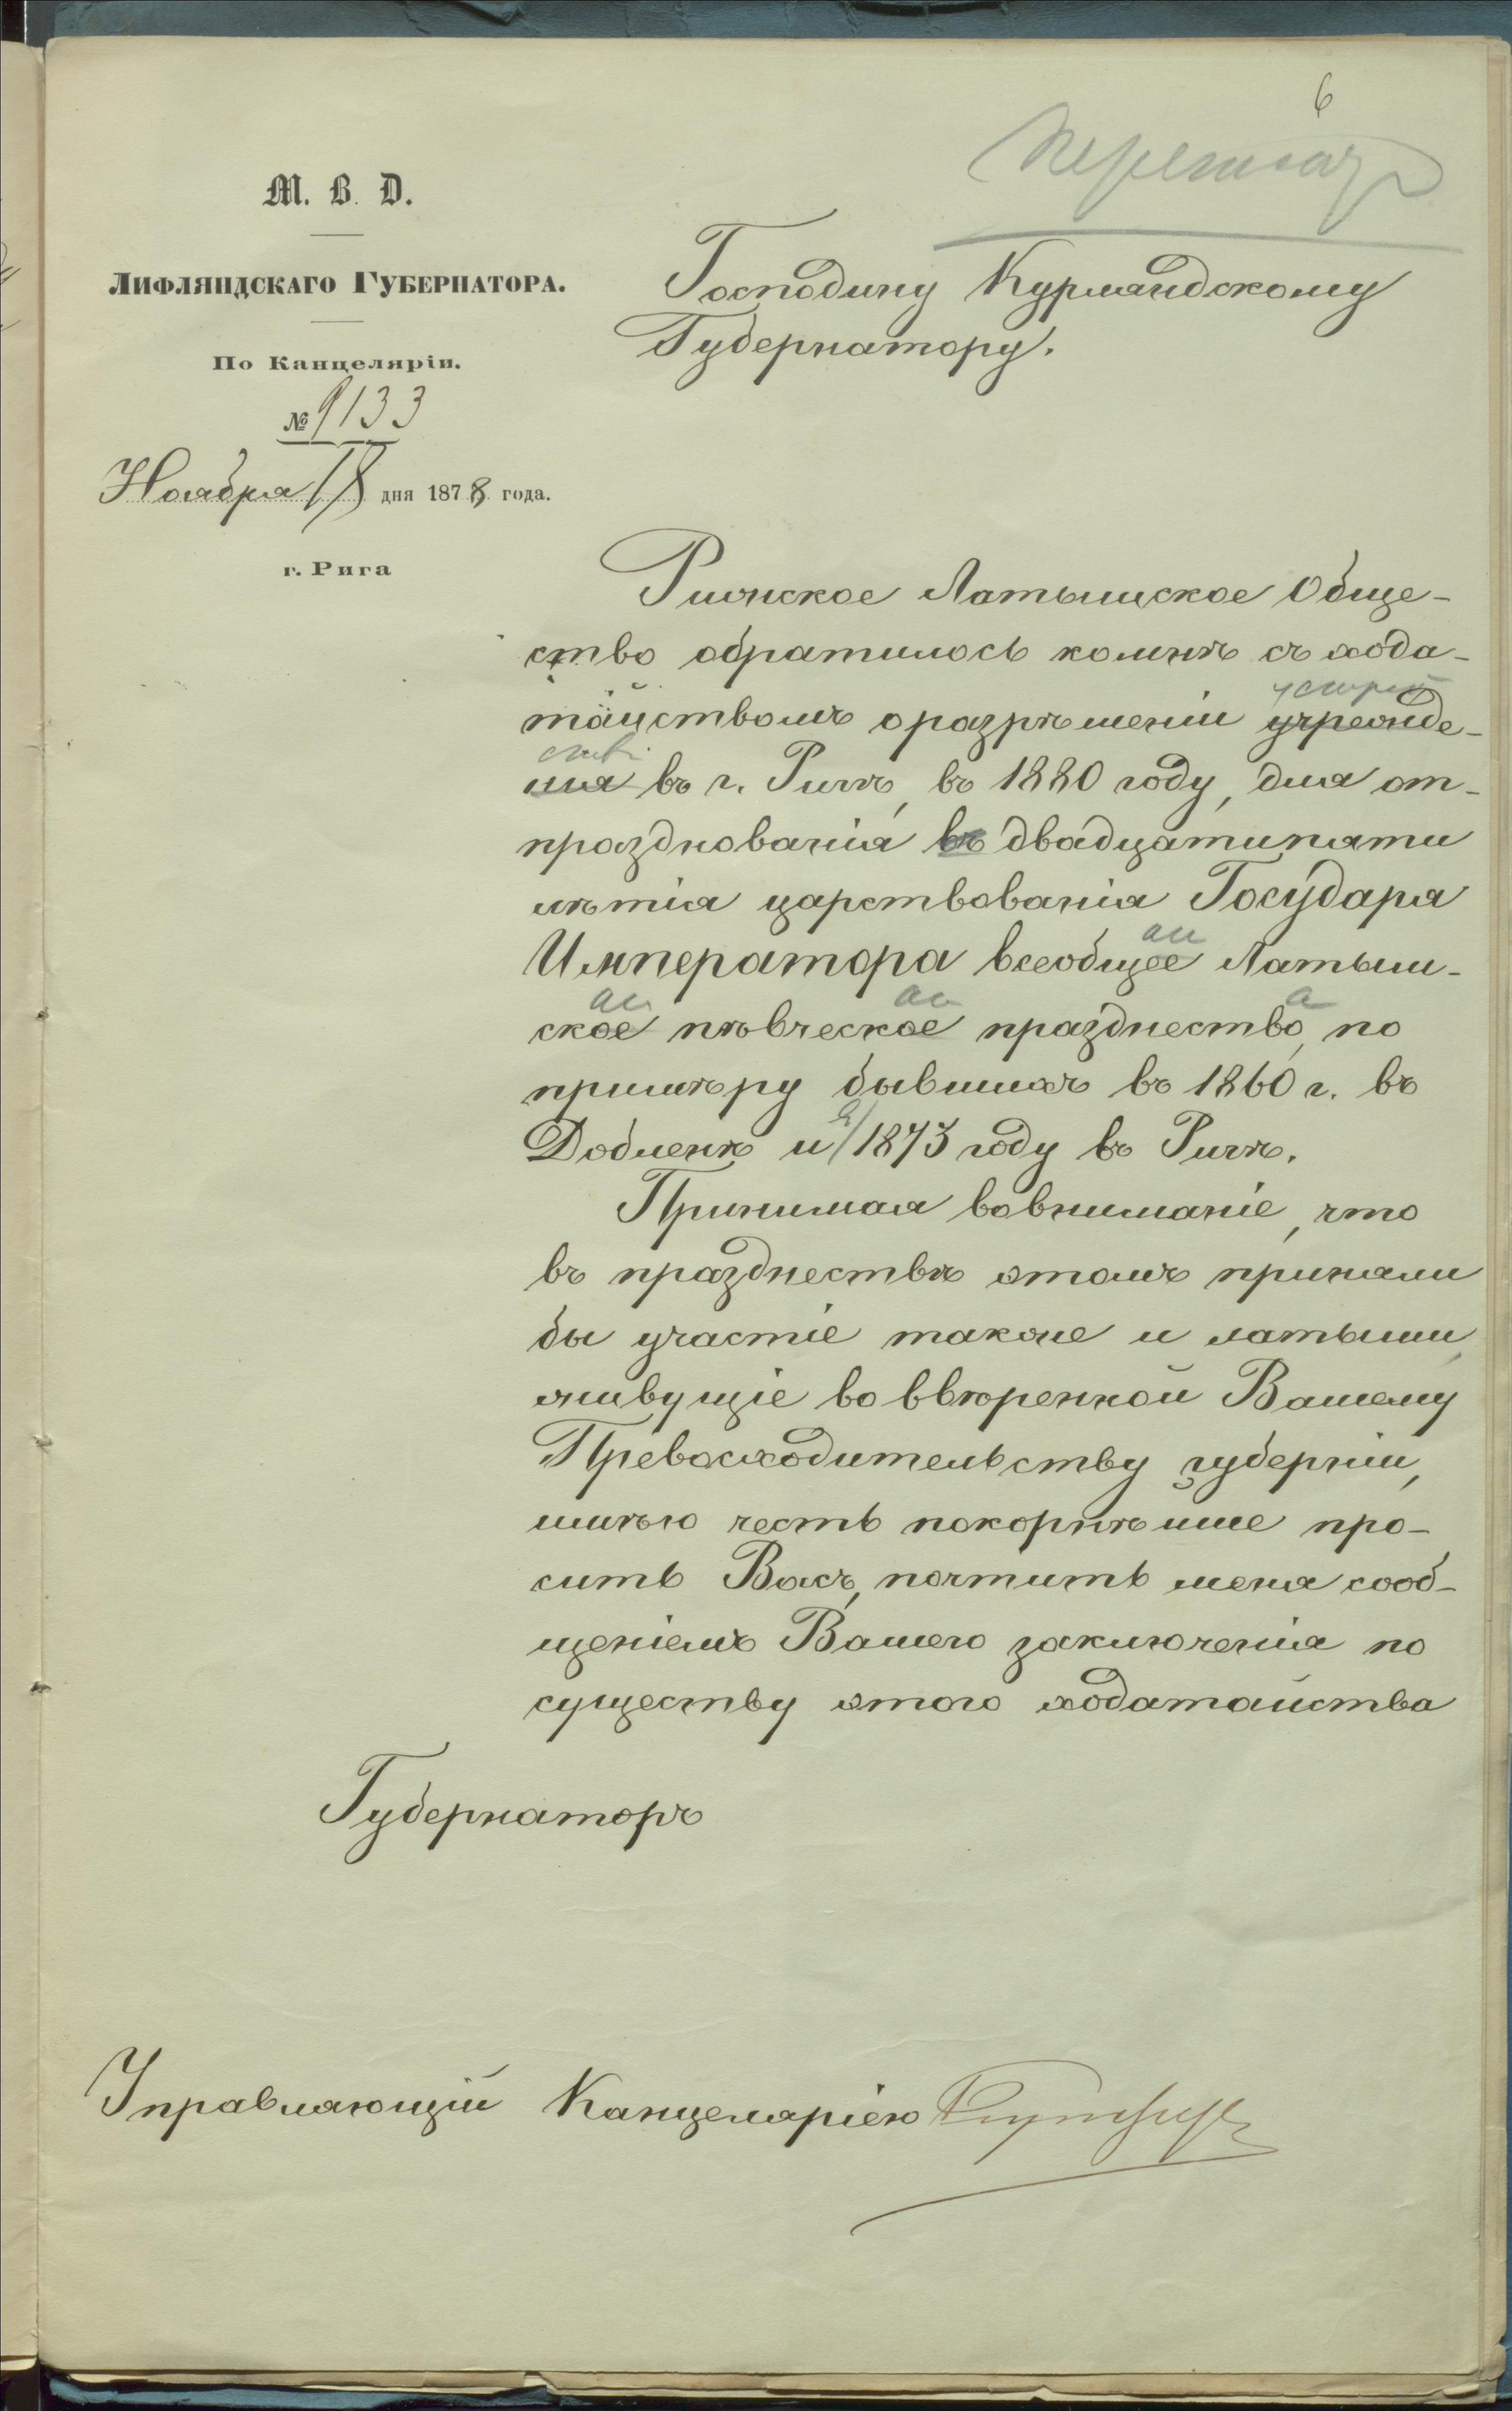 6
М. В. Д.
Лифляндскаго Губернатора.
По Канцеляріи.
№ 9133
Ноября 18 дня 1878 года.
г. Рига
Господину Курляндскому
Губернатору.
Рижское Латышское Обще-
ство обратилось комнѣ съ хода-
тайствомъ о разрѣшеніи учрежде-
нія въ г. Ригѣ, въ 1880 году, для от-
празднованія въ двадцатипяти
лѣтія царствованія Государя
Императора всеобщее Латыш-
ское пѣвческое празднество, по
примѣру бывшихъ въ 1860 г. въ
Добленѣ и въ 1873 году въ Ригѣ.
Принимая вовниманіе, что
въ празднествѣ этомъ приняли
бы участіе также и латыши,
живущіе во ввѣренной Вашему
Превосходительству губерніи,
имѣю честь покорнѣйше про-
сить Васъ, почтить меня сооб-
щеніемъ Вашего заключенія по
существу этого ходатайства
Губернаторъ
Управляющій Канцеляріею